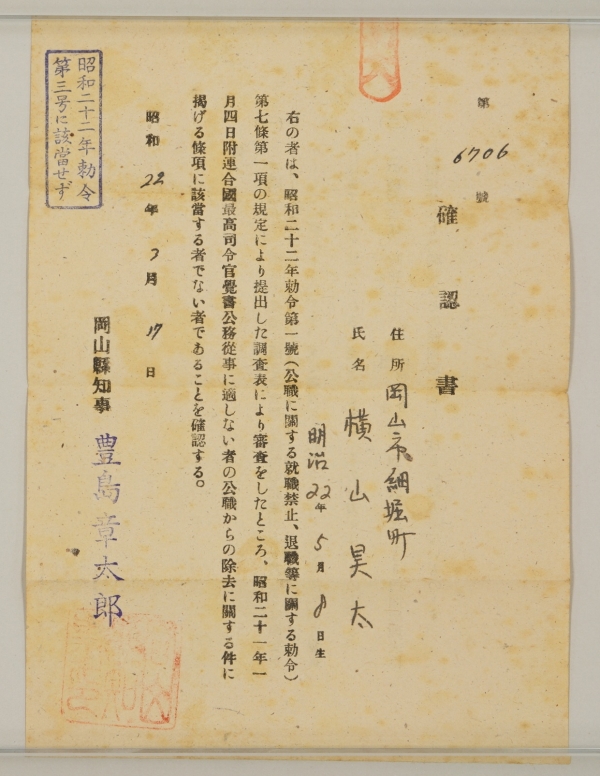 第 6706 號
確認書
住所 岡山市細堀町
氏名 横山昊太
明治22年5月8日生
右の者は、昭和二十二年勅令第一號(公職に關する就職禁止、退職等に關する勅令)
第七條第一項の規定により提出した調査表により審査をしたところ、昭和二十一年一
月四日附連合國最高司令官覺書公務從事に適しない者の公職からの除去に關する件に
揭げる條項に該當する者でない者であることを確認する。
昭和22年7月17日
岡山縣知事 豊島章太郎
昭和二十二年勅令
第三号に該當せず